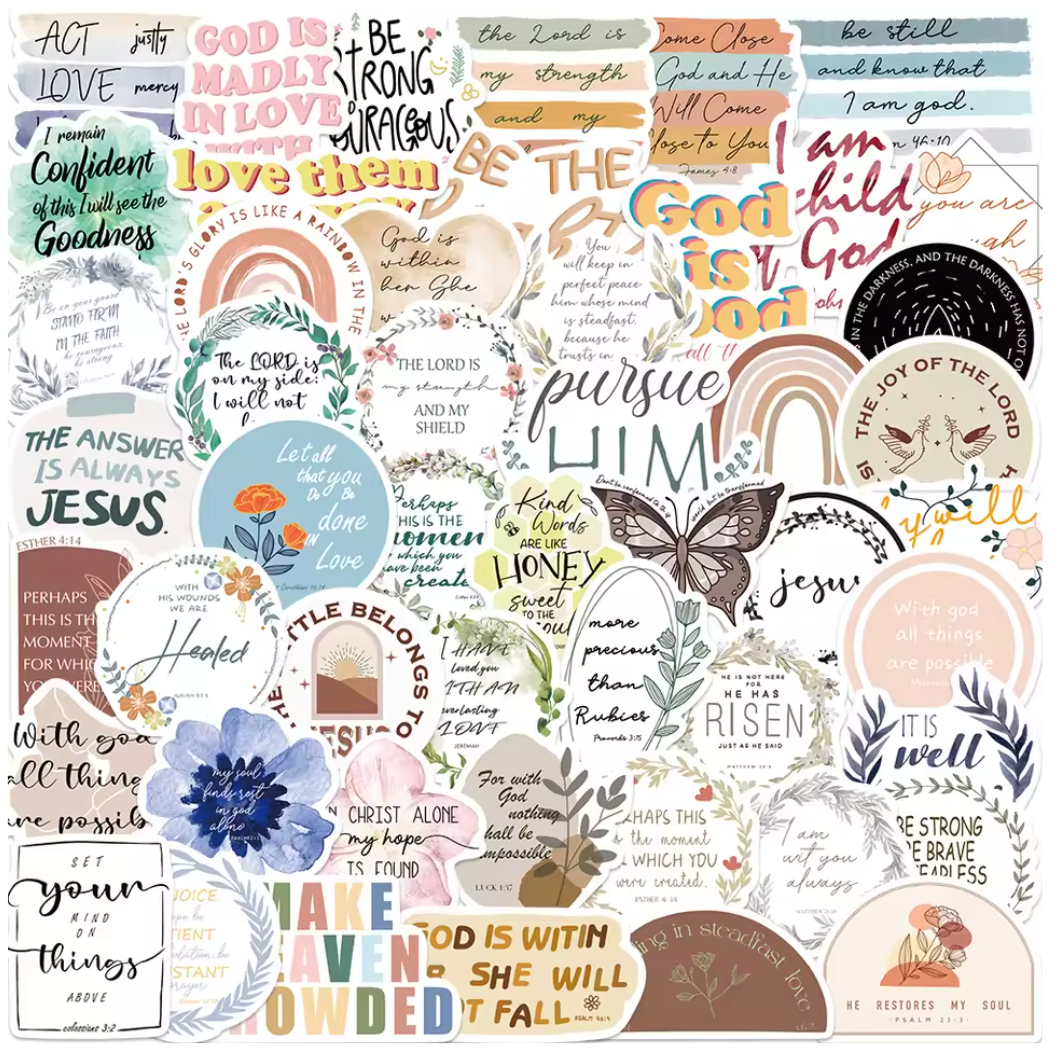 ACT justly
LOVE mercy
GOD IS
MADLY
IN LOVE
WITH
BE
STRONG
the Lord is
my strength
and my
Come Close
God and He
Will Come
Close to You
James 4:8
be still
and know that
I am god.
46:10
I remain
Confident
of this I will see the
Goodness
love them
BE THE
God
is
I am
child
God
you are
THE LORD'S GLORY IS LIKE A RAINBOW IN THE
God is
within
her She
You
will keep in
perfect peace
him whose mind
is steadfast,
because he
trusts in
IN THE DARKNESS, AND THE DARKNESS HAS NOT
STAND FIRM
IN THE FAITH
be courageous
be strong
The LORD is
on my side;
I will not
THE LORD IS
my strength
AND MY
SHIELD
pursue
HIM
THE JOY OF THE LORD
IS
THE ANSWER
IS ALWAYS
JESUS.
Let all
that you
Do Be
done
IN
Love
Perhaps
THIS IS THE
moment
which you
have been
created
Kind
Words
ARE LIKE
HONEY
sweet
TO THE
Don't be conformed to the
world but be transformed
jesus
will
ESTHER 4:14
PERHAPS
THIS IS TH
MOMENT
FOR WHIC
YOU WERE
WITH
HIS WOUNDS
WE ARE
Healed
TTLE BELONGS TO
JESUS
I HAVE
loved you
WITH AN
everlasting
LOVE
JEREMIAH
more
precious
than
Rubies
Proverbs 3:15
HE IS NOT HERE
FOR
HE HAS
RISEN
JUST AS HE SAID
With god
all things
are possible
IT IS
well
With god
all thing
are possib
my soul
finds rest
in god
alone
IN CHRIST ALONE
my hope
IS FOUND
For with
God
nothing
shall be
impossible
LUKE 1:37
RHAPS THIS
is the moment
WHICH YOU
were created.
ESTHER 4:14
I am
wit you
always
BE STRONG
BE BRAVE
FEARLESS
SET
your
MIND
ON
things
ABOVE
colossians 3:2
JOICE
hope be
TIENT
STANT
prayer
MAKE
EAVEN
ROWDED
GOD IS WITIN
R SHE WILL
OT FALL
PSALM 46:5
ing in steadfast love
HE RESTORES MY SOUL
·PSALM 23:3·